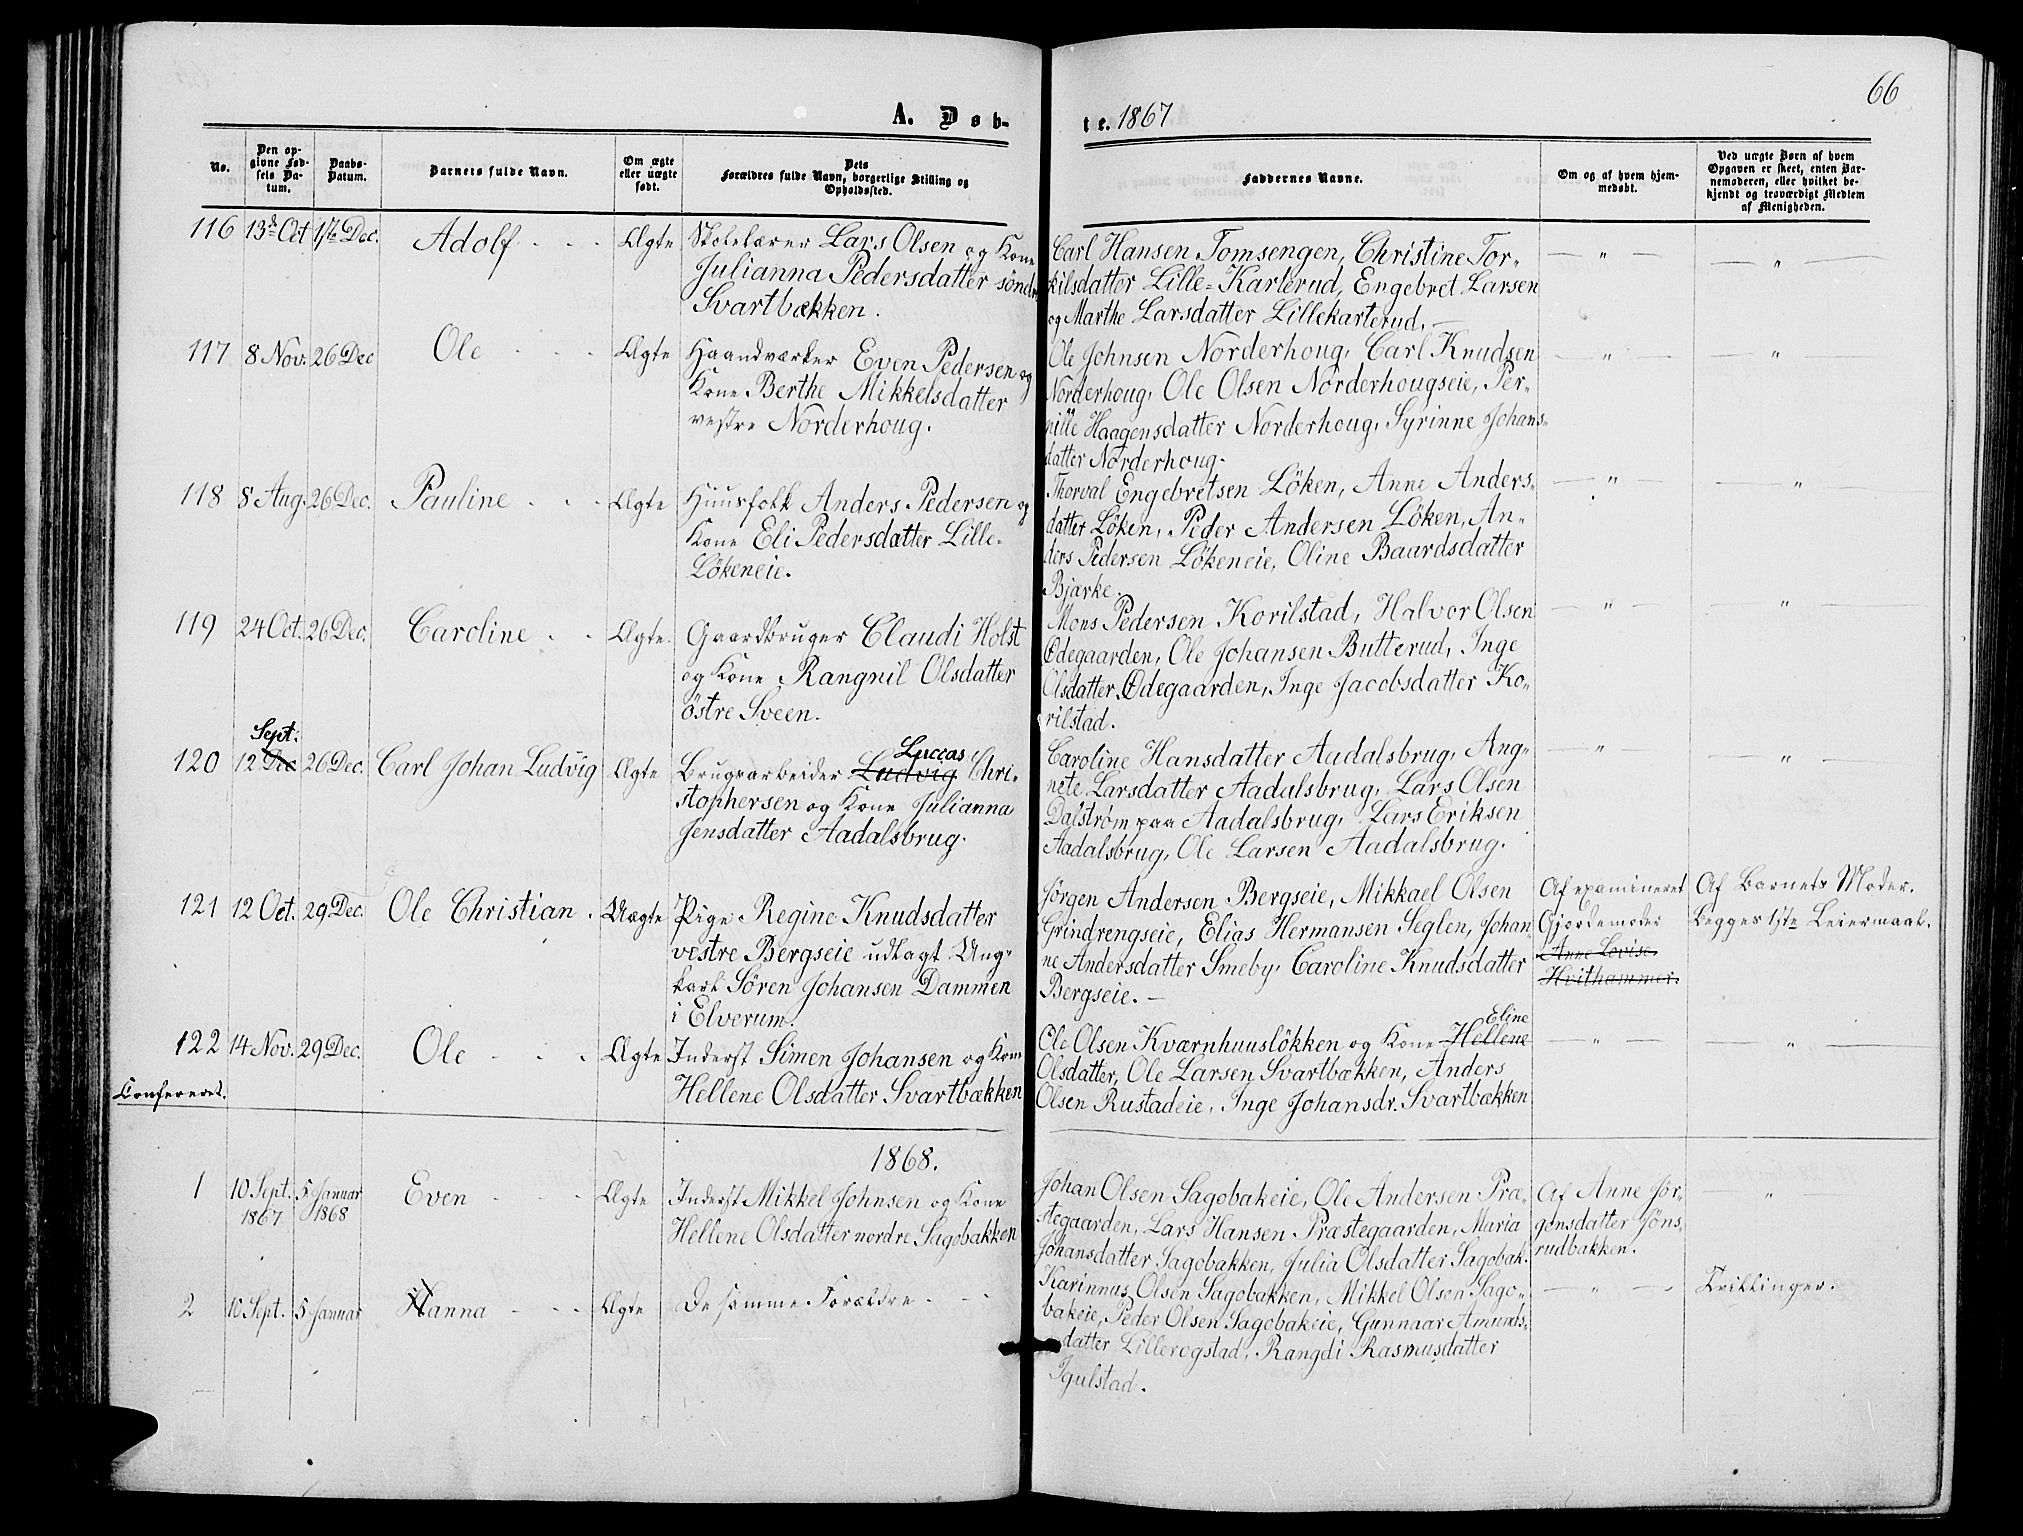 66
A. Døb-
te. 1867
No.
Den op-
givne Fød-
sels Da-
tum.
Daabs-
Datum.
Barnets fulde Navn.
Om ægte
eller uægte
født.
Dets
Forældres fulde Navn, borgerlige Stilling og
Opholdssted.
Faddernes Navne.
Om og af hvem hjem-
medøbt.
Ved uægte Børn af hvem
Opgaven er skeet, enten Bar-
nemoderen, eller hvilket be-
kjendt og troværdigt Medlem
af Menigheden.
116 13de Oct 1ste Dec. Adolf - - - Ægte
Skolelærer Lars Olsen og Kone
Julianna Pedersdatter söndr
Svartbækken.
Carl Hansen Tomsengen, Christine Tor-
kilsdatter Lille-Karterud, Engebret Larsen
og Marthe Larsdatter Lillekarterud. —
— " —
— " —
117 8 Nov. 26 Dec Ole - - - Ægte
Haandværker Even Pedersen og
Kone Berthe Mikkelsdatter
vestre Norderhoug.
Ole Johnsen Norderhoug, Carl Knudsen
Norderhoug, Ole Olsen Norderhougseie, Per-
nille Haagensdatter Norderhoug, Syrinne Johans-
datter Norderhoug.
— " —
— " —
118 8 Aug. 26 Dec. Pauline - - - Ægte
Huusfolk Anders Pedersen og
Kone Eli Pedersdatter Lille-
Lökeneie.
Thorval Engebretsen Löken, Anne Anders-
datter Löken, Peder Andersen Löken, An-
ders Pedersen Lökeneie, Oline Baardsdatter
Bjærke.
— " —
— " —
119 24 Oct. 26 Dec. Caroline - - Ægte.
Gaardbruger Claudi Holst
og Kone Rangnil Olsdatter
östre Sveen.
Mons Pedersen Korilstad, Halvor Olsen
Ødegaarden, Ole Johansen Butterud, Inge
Olsdatter Ødegaarden, Inge Jacobsdatter Ko-
rilstad.
— " —
— " —
Sept.
120 12 Dec 26 Dec. Carl Johan Ludvig Ægte
Luccas
Brugsarbeider Ludvig Chri-
stophersen og Kone Julianna
Jensdatter Aadalsbrug.
Caroline Hansdatter Aadalsbrug, Ang-
nete Larsdatter Aadalsbrug, Lars Olsen
Dalstrøm paa Aadalsbrug, Lars Eriksen
Aadalsbrug, Ole Larsen Aadalsbrug.
— "
— " —
121 12 Oct. 29 Dec. Ole Christian. Uægte
Pige Regine Knudsdatter
vestre Bergseie udlagt Ung-
karl Sören Johansen Dammen
i Elverum.
Jörgen Andersen Bergseie, Mikkael Olsen
Grindrengseie, Elias Hermansen Seglen, Johan-
ne Andersdatter Smeby, Caroline Knudsdatter
Bergseie. —
Af examineret
Gjordemoder
Anne Lovise
Hvithammer.
Af Barnets Moder.
Begges 1ste Leiermaal.
122 14 Nov. 29 Dec. Ole - - - Ægte
Confereret.
Inderst Simen Johansen og Kone
Hellene Olsdatter Svartbækken
Eline
Ole Olsen Kværnhuuslökken og Kone Hellene
Olsdatter, Ole Larsen Svartbækken, Anders
Olsen Rustadeie, Inge Johansdr. Svartbækken
— " —
— " —
1868.
1 10 Sept. 5 Januar Even - - - Ægte
1867 1868
Inderst Mikkel Johnsen og Kone
Hellene Olsdatter nordre Sagobakken
Johan Olsen Sagobakeie, Ole Andersen Præ-
stegaarden, Lars Hansen Præstegaarden, Maria
Johansdatter Sagobakken, Julia Olsdatter Sagobak.
Af Anne Jör-
gensdatter Jöns-
rudbakken.
— " —
2 10 Sept. 5 Januar Hanna - - - Ægte
De samme Forældre - - -
Karinnus Olsen Sagobakken, Mikkel Olsen Sago-
bakeie, Peder Olsen Sagobakeie, Gunnaar Amunds-
datter Lillerogstad, Rangdi Rasmusdatter
Igulstad.
— " —
Tvillinger.